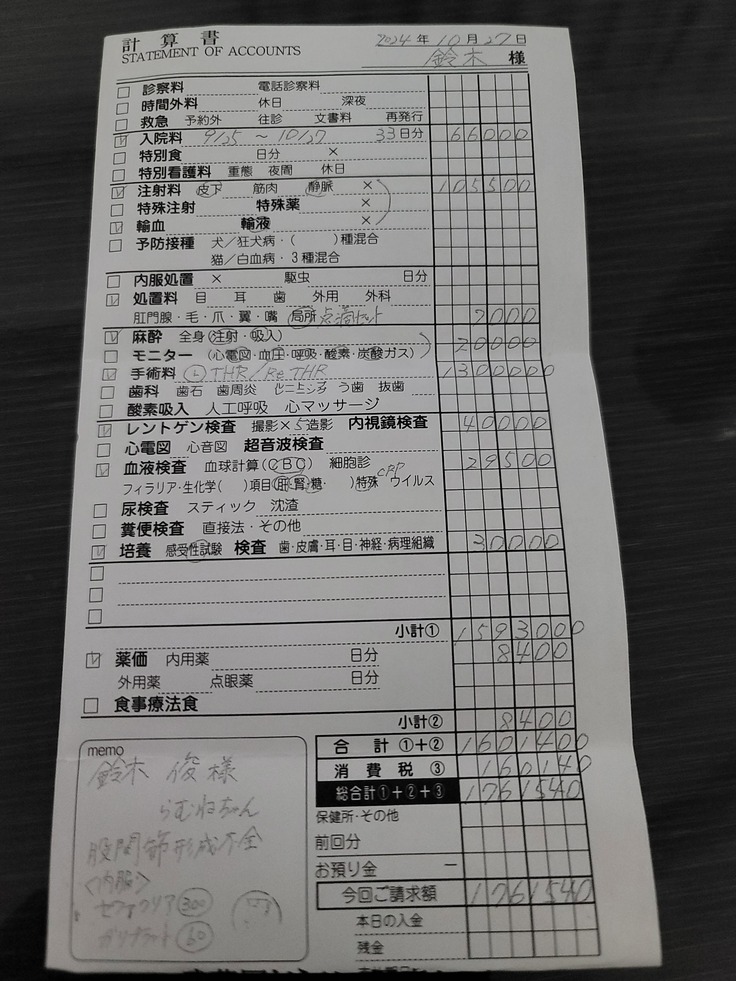 計算書
STATEMENT OF ACCOUNTS
2024年10月27日
鈴木 様
診察料 電話診察料
時間外料 休日 深夜
救急 予約外 往診 文書料 再発行
入院料 9/25 ～ 10/27 33日分 66000
特別食 日分 ×
特別看護料 重態 夜間 休日
注射料 皮下 筋肉 静脈 × 105500
特殊注射 特殊薬 ×
輸血 輸液 ×
予防接種 犬／狂犬病・( )種混合
猫／白血病・3種混合
内服処置 × 駆虫 日分
処置料 目 耳 歯 外用 外科
肛門腺・毛・爪・翼・嘴 局所 点滴セット 2000
麻酔 全身(注射・吸入) 20000
モニター (心電図・血圧・呼吸・酸素・炭酸ガス)
手術料 Ⓛ THR/Re THR 1300000
歯科 歯石 歯周炎 う歯 抜歯
酸素吸入 人工呼吸 心マッサージ
レントゲン検査 撮影×5 造影 内視鏡検査 40000
心電図 心音図 超音波検査
血液検査 血球計算(CBC) 細胞診 29500
フィラリア・生化学( )項目(肝・腎・糖・ )特殊 CRP ウイルス
尿検査 スティック 沈渣
糞便検査 直接法・その他
培養 感受性試験 検査 歯・皮膚・耳・目・神経・病理組織 30000
小計① 1593000
薬価 内用薬 日分 8400
外用薬 点眼薬 日分
食事療法食
小計② 8400
合計①＋② 1601400
消費税③ 160140
総合計①＋②＋③ 1761540
保健所・その他
前回分
お預り金 －
今回ご請求額 1761540
本日の入金
残金
memo
鈴木 俊様
らむねちゃん
股関節形成不全
<内服>
セファクリア 300
ガバプラット 60